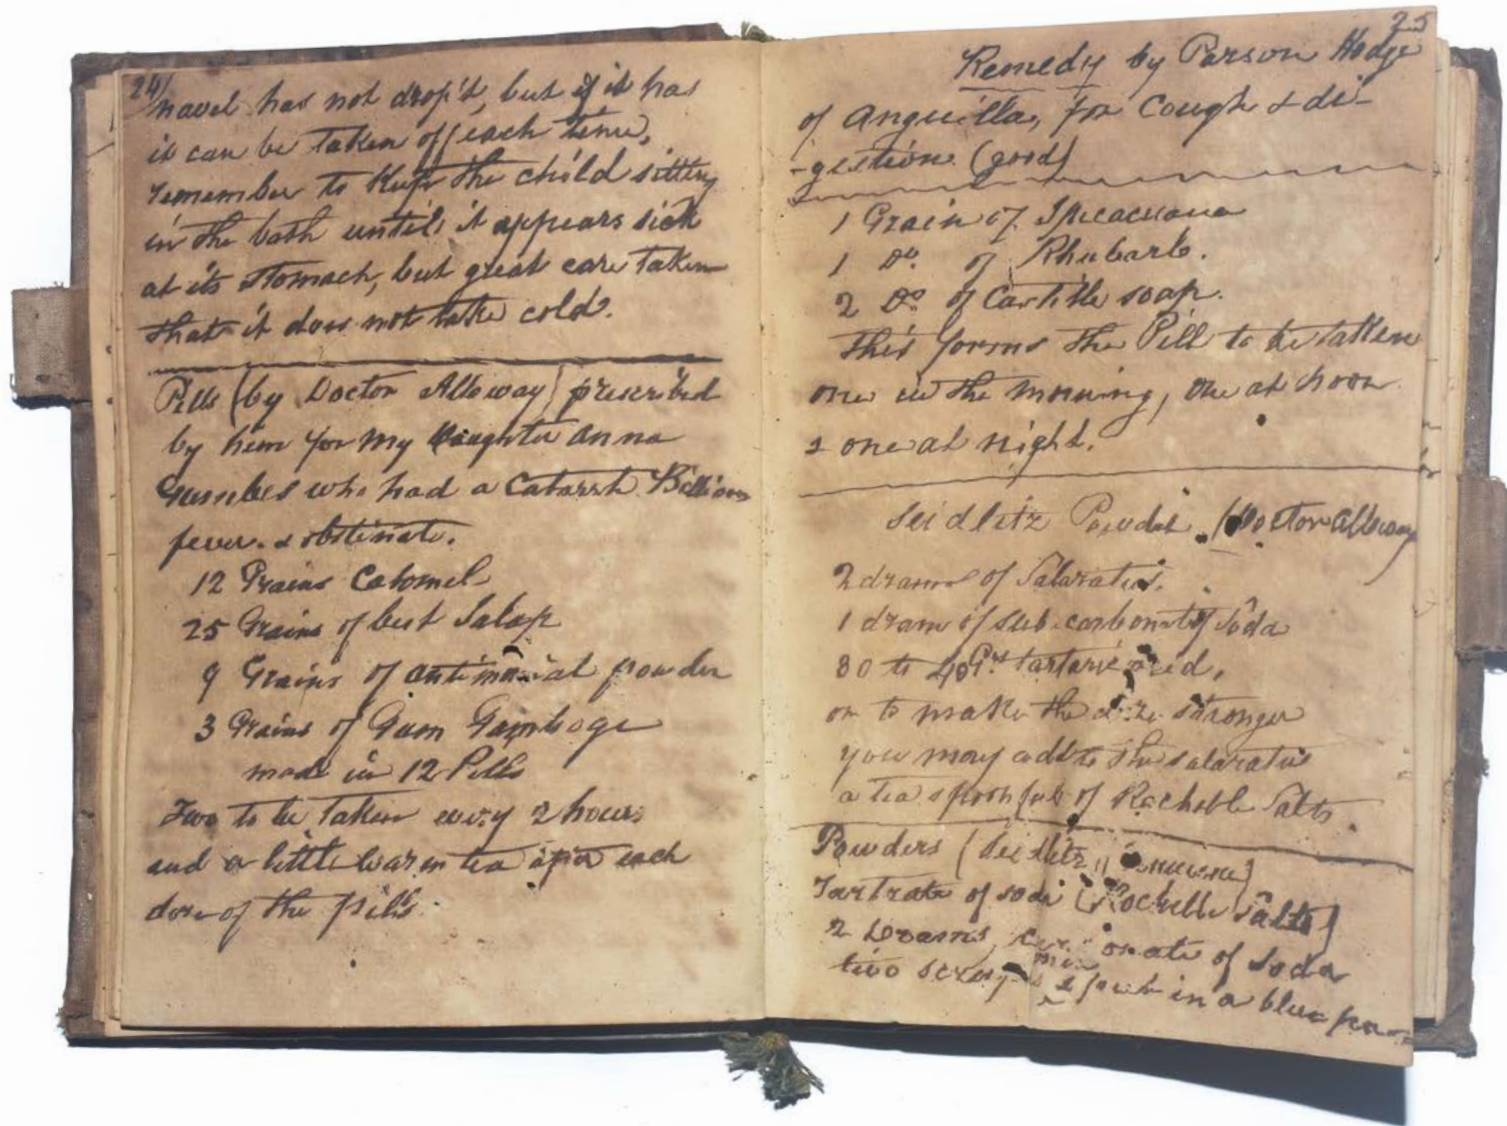 24
navel has not drop'd, but if it has
it can be taken off each time,
remember to keep the child sitting
in the bath until it appears sick
at its stomach, but great care taken
that it does not take cold.
Pills (by Doctor Alloway) prescribed
by him for my daughter Anna
who had a Catarrh Billious
fever. & obstinate.
12 Grains Calomel
25 Grains of best Jalap
9 Grains of antimonial powder
3 Grains of Gum Gamboge
made in 12 Pills
Two to be taken every 2 hours
and a little warm tea after each
dose of the pills
25
Remedy by Parson Hodge
of Anguilla, for Cough & di-
-gestion (good)
1 Grain of Ipecacuana
1 Do. of Rhubarb.
2 Do. of Castille soap.
This forms the Pill to be taken
one in the morning, one at noon
& one at night.
Seidlitz Powder. (Doctor Alloway
2 drams of Salaratus.
1 dram of sub-carbonate of Soda
30 to 40 Grs tartaric acid,
or to make the doze stronger
you may add to the salaratus
a tea spoonful of Rochelle Salts.
Powders (Seidlitz)
Tartrate of soda (Rochelle Salts)
2 Drams, carbonate of Soda
two scruples mix & put in a blue paper